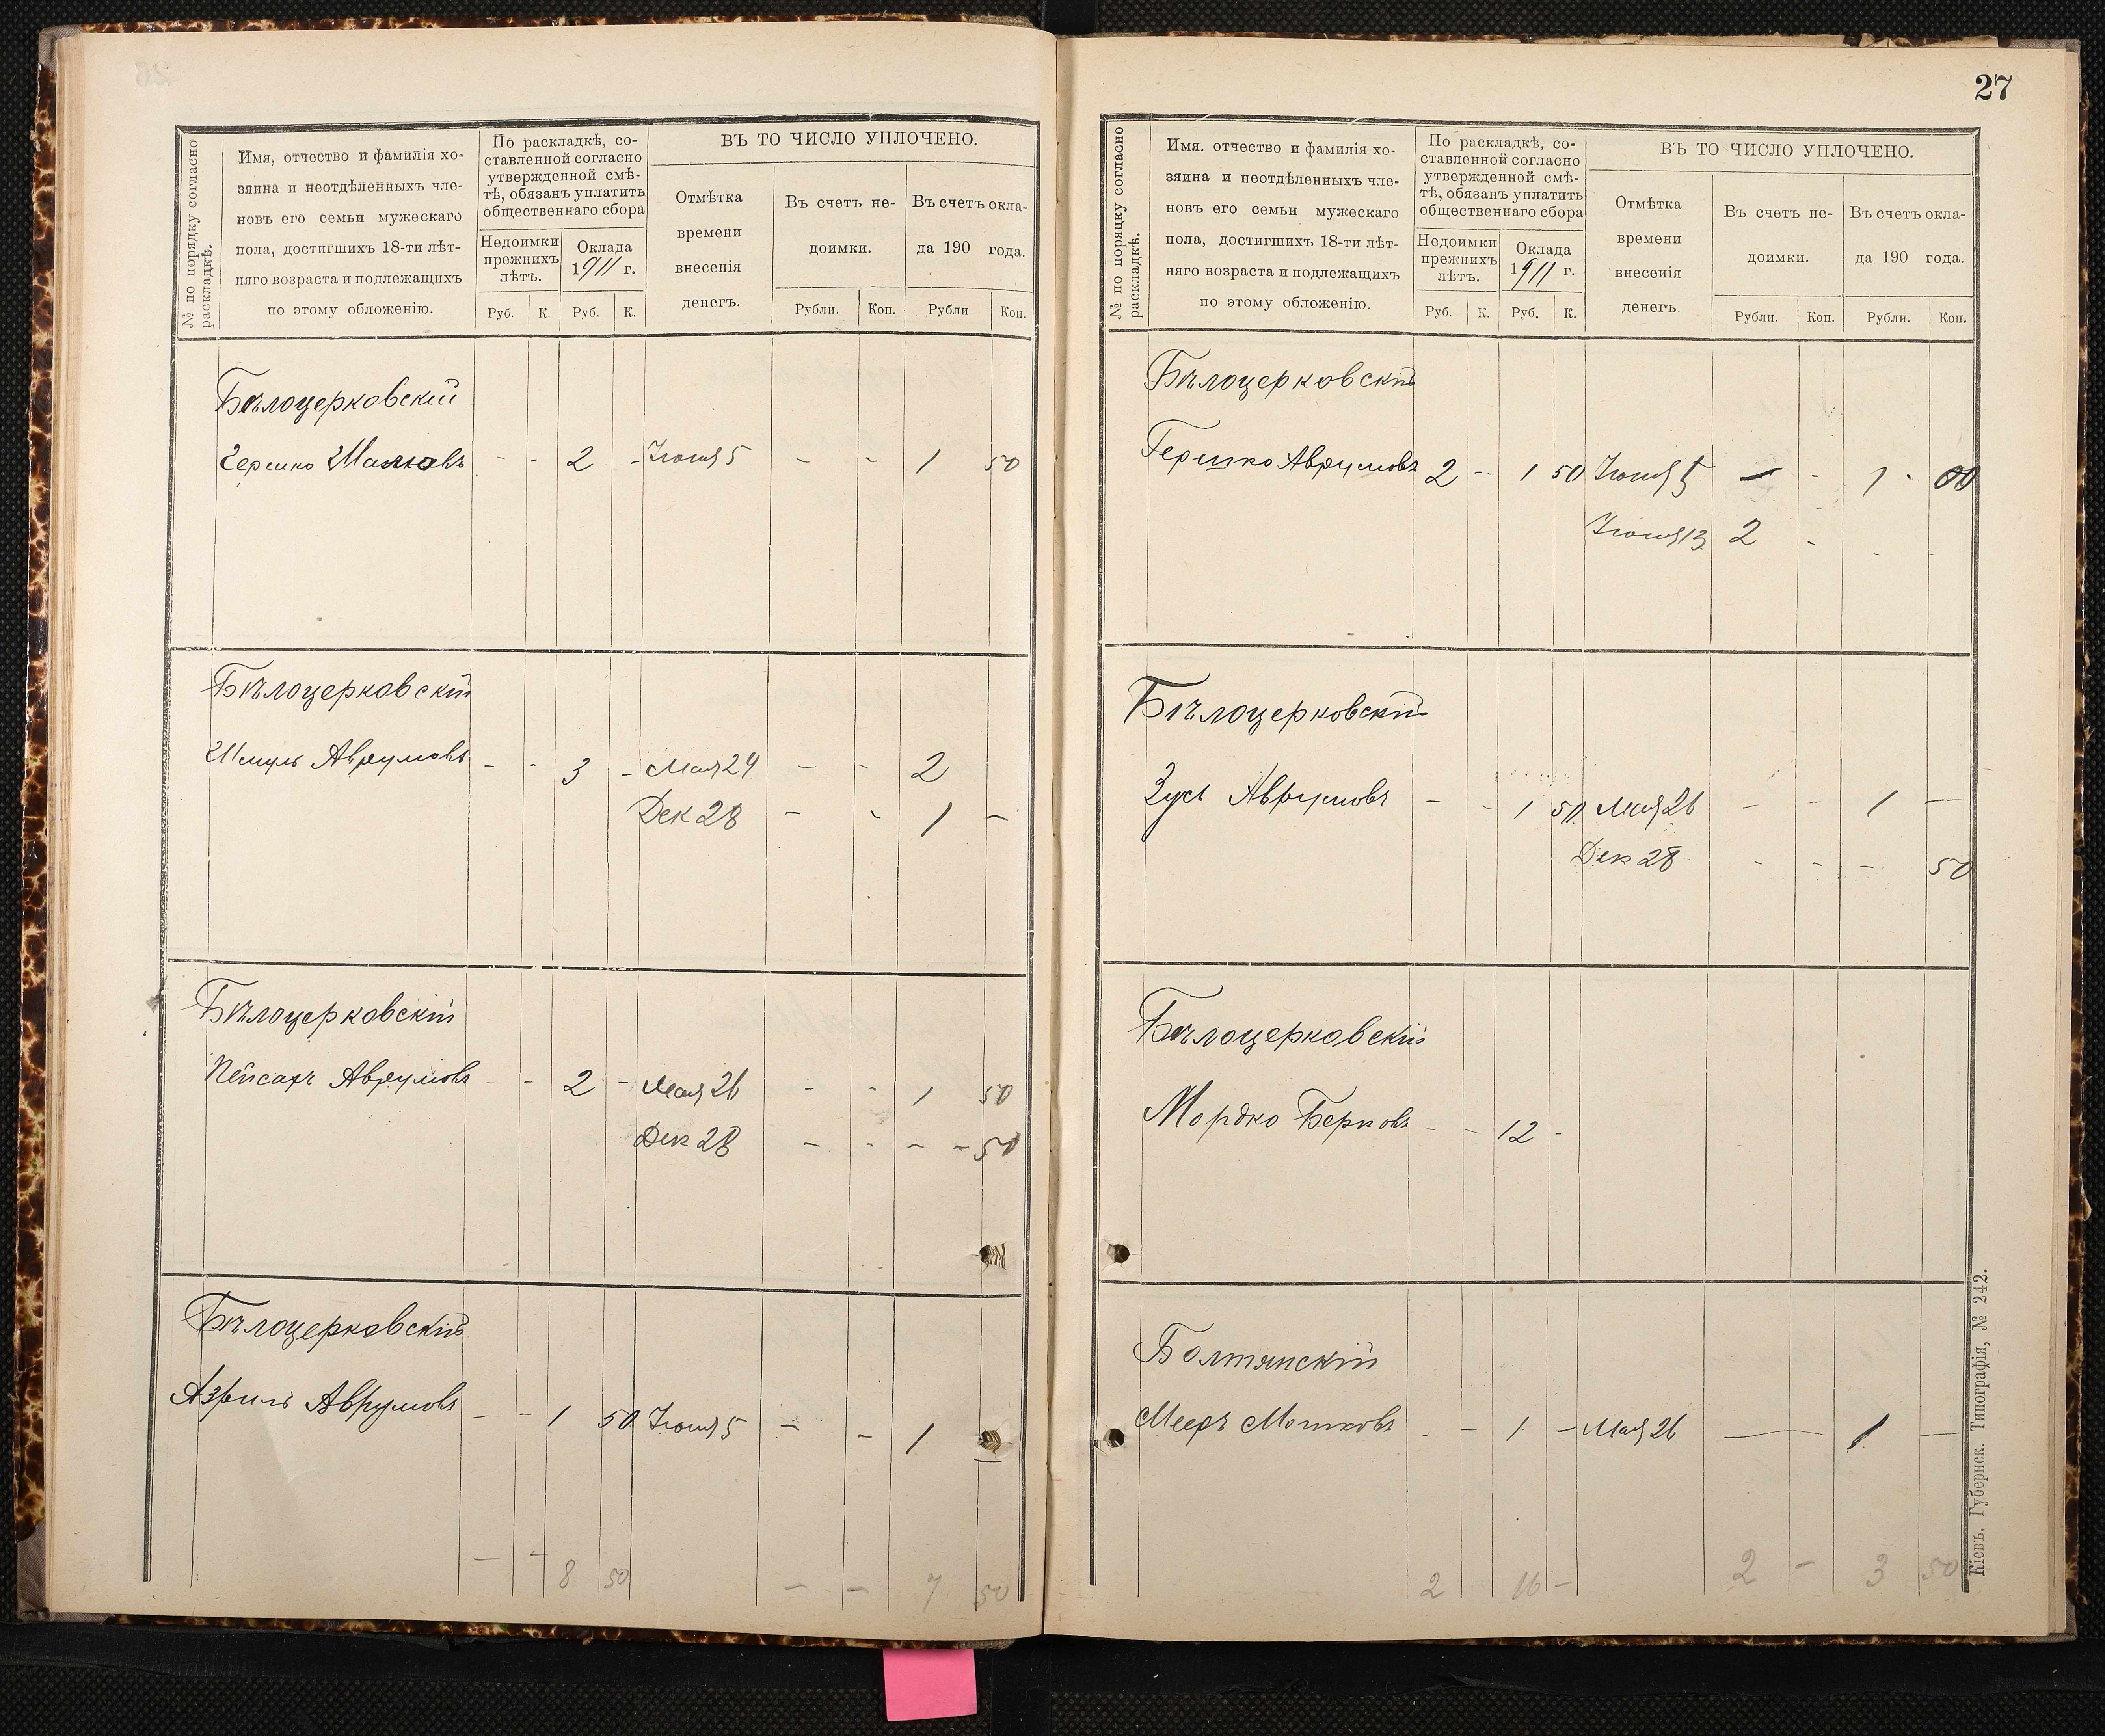 № по порядку согласно раскладкѣ.
Имя, отчество и фамилія хо-
зяина и неотдѣленныхъ чле-
новъ его семьи мужескаго
пола, достигшихъ 18-ти лѣт-
няго возраста и подлежащихъ
по этому обложенію.
По раскладкѣ, со-
ставленной согласно
утвержденной смѣ-
тѣ, обязанъ уплатить
общественнаго сбора
Недоимки прежнихъ лѣтъ.
Оклада 1911 г.
Руб. К. Руб. К.
ВЪ ТО ЧИСЛО УПЛОЧЕНО.
Отмѣтка
времени
внесенія
денегъ.
Въ счетъ не-
доимки.
Въ счетъ окла-
да 190 года.
Рубли. Коп. Рубли Коп.
Бѣлоцерковскій
Гершко - - 2 - Іюня 5 - - 1 50
Бѣлоцерковскій
Шмуль Аврумовъ - - 3 - Мая 24 - - 2
Дек 28 - - 1 -
Бѣлоцерковскій
Пейсахъ Аврумовъ - - 2 - Мая 26 - - 1 50
Дек 28 - - - - 50
Бѣлоцерковскій
Азриль Аврумовъ - - 1 50 Іюня 5 - - 1
- - 8 50 - - 7 50
27
№ по порядку согласно раскладкѣ.
Имя. отчество и фамилія хо-
зяина и неотдѣленныхъ чле-
новъ его семьи мужескаго
пола, достигшихъ 18-ти лѣт-
няго возраста и подлежащихъ
по этому обложенію.
По раскладкѣ, со-
ставленной согласно
утвержденной смѣ-
тѣ, обязанъ уплатить
общественнаго сбора
Недоимки прежнихъ лѣтъ.
Оклада 1911 г.
Руб. К. Руб. К.
ВЪ ТО ЧИСЛО УПЛОЧЕНО.
Отмѣтка
времени
внесенія
денегъ.
Въ счетъ не-
доимки.
Въ счетъ окла-
да 190 года.
Рубли. Коп. Рубли. Коп.
Бѣлоцерковскій
Гершко Аврумовъ 2 -- 1 50 Іюня 5 - - 1 -
Іюня 13 2 - - -
Бѣлоцерковскій
Зусь Аврумовъ - - 1 50 Мая 26 - - 1 -
Дек 28 - - - 50
Бѣлоцерковскій
Мордко Берковъ - - 12 -
Болтянскій
Мееръ Мошковъ - - 1 - Мая 26 - 1 -
2 16 - 2 - 3 50
Кіевъ. Губернск. Типографія, № 242.